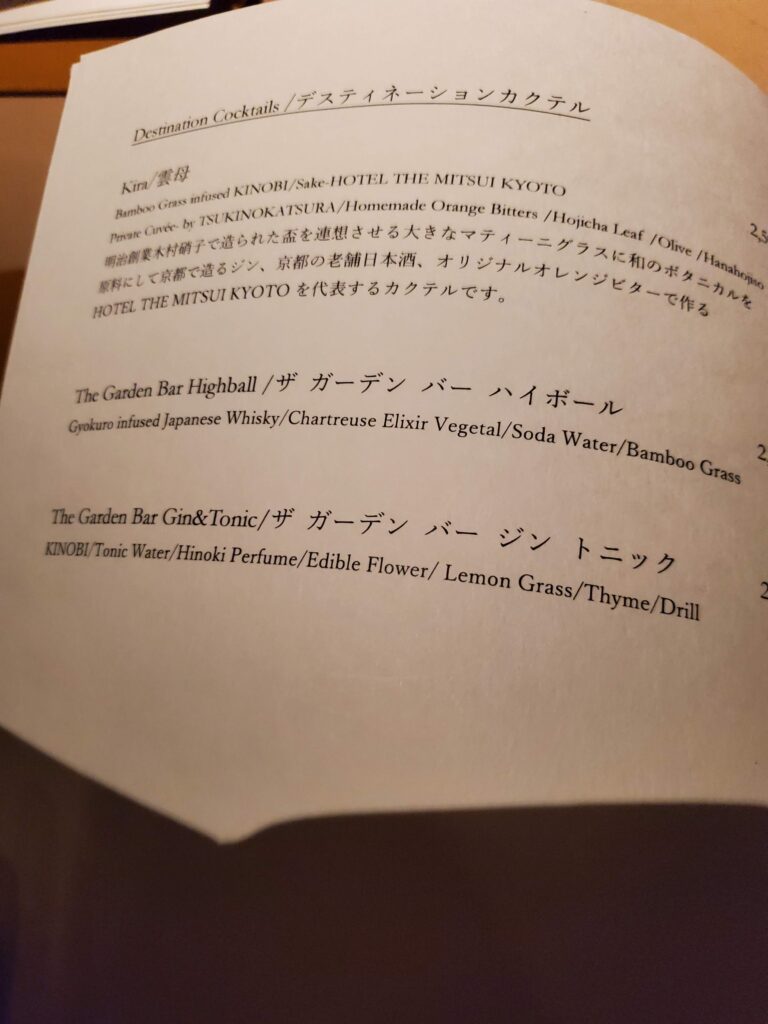 Destination Cocktails /デスティネーションカクテル
Kira/雲母
Bamboo Grass infused KINOBI/Sake-HOTEL THE MITSUI KYOTO
Private Cuvée- by TSUKINOKATSURA/Homemade Orange Bitters /Hojicha Leaf /Olive /Hanahojiso
明治創業木村硝子で造られた盃を連想させる大きなマティーニグラスに和のボタニカルを
原料にして京都で造るジン、京都の老舗日本酒、オリジナルオレンジビターで作る
HOTEL THE MITSUI KYOTO を代表するカクテルです。
The Garden Bar Highball /ザ ガーデン バー ハイボール
Gyokuro infused Japanese Whisky/Chartreuse Elixir Vegetal/Soda Water/Bamboo Grass
The Garden Bar Gin&Tonic/ザ ガーデン バー ジン トニック
KINOBI/Tonic Water/Hinoki Perfume/Edible Flower/ Lemon Grass/Thyme/Drill